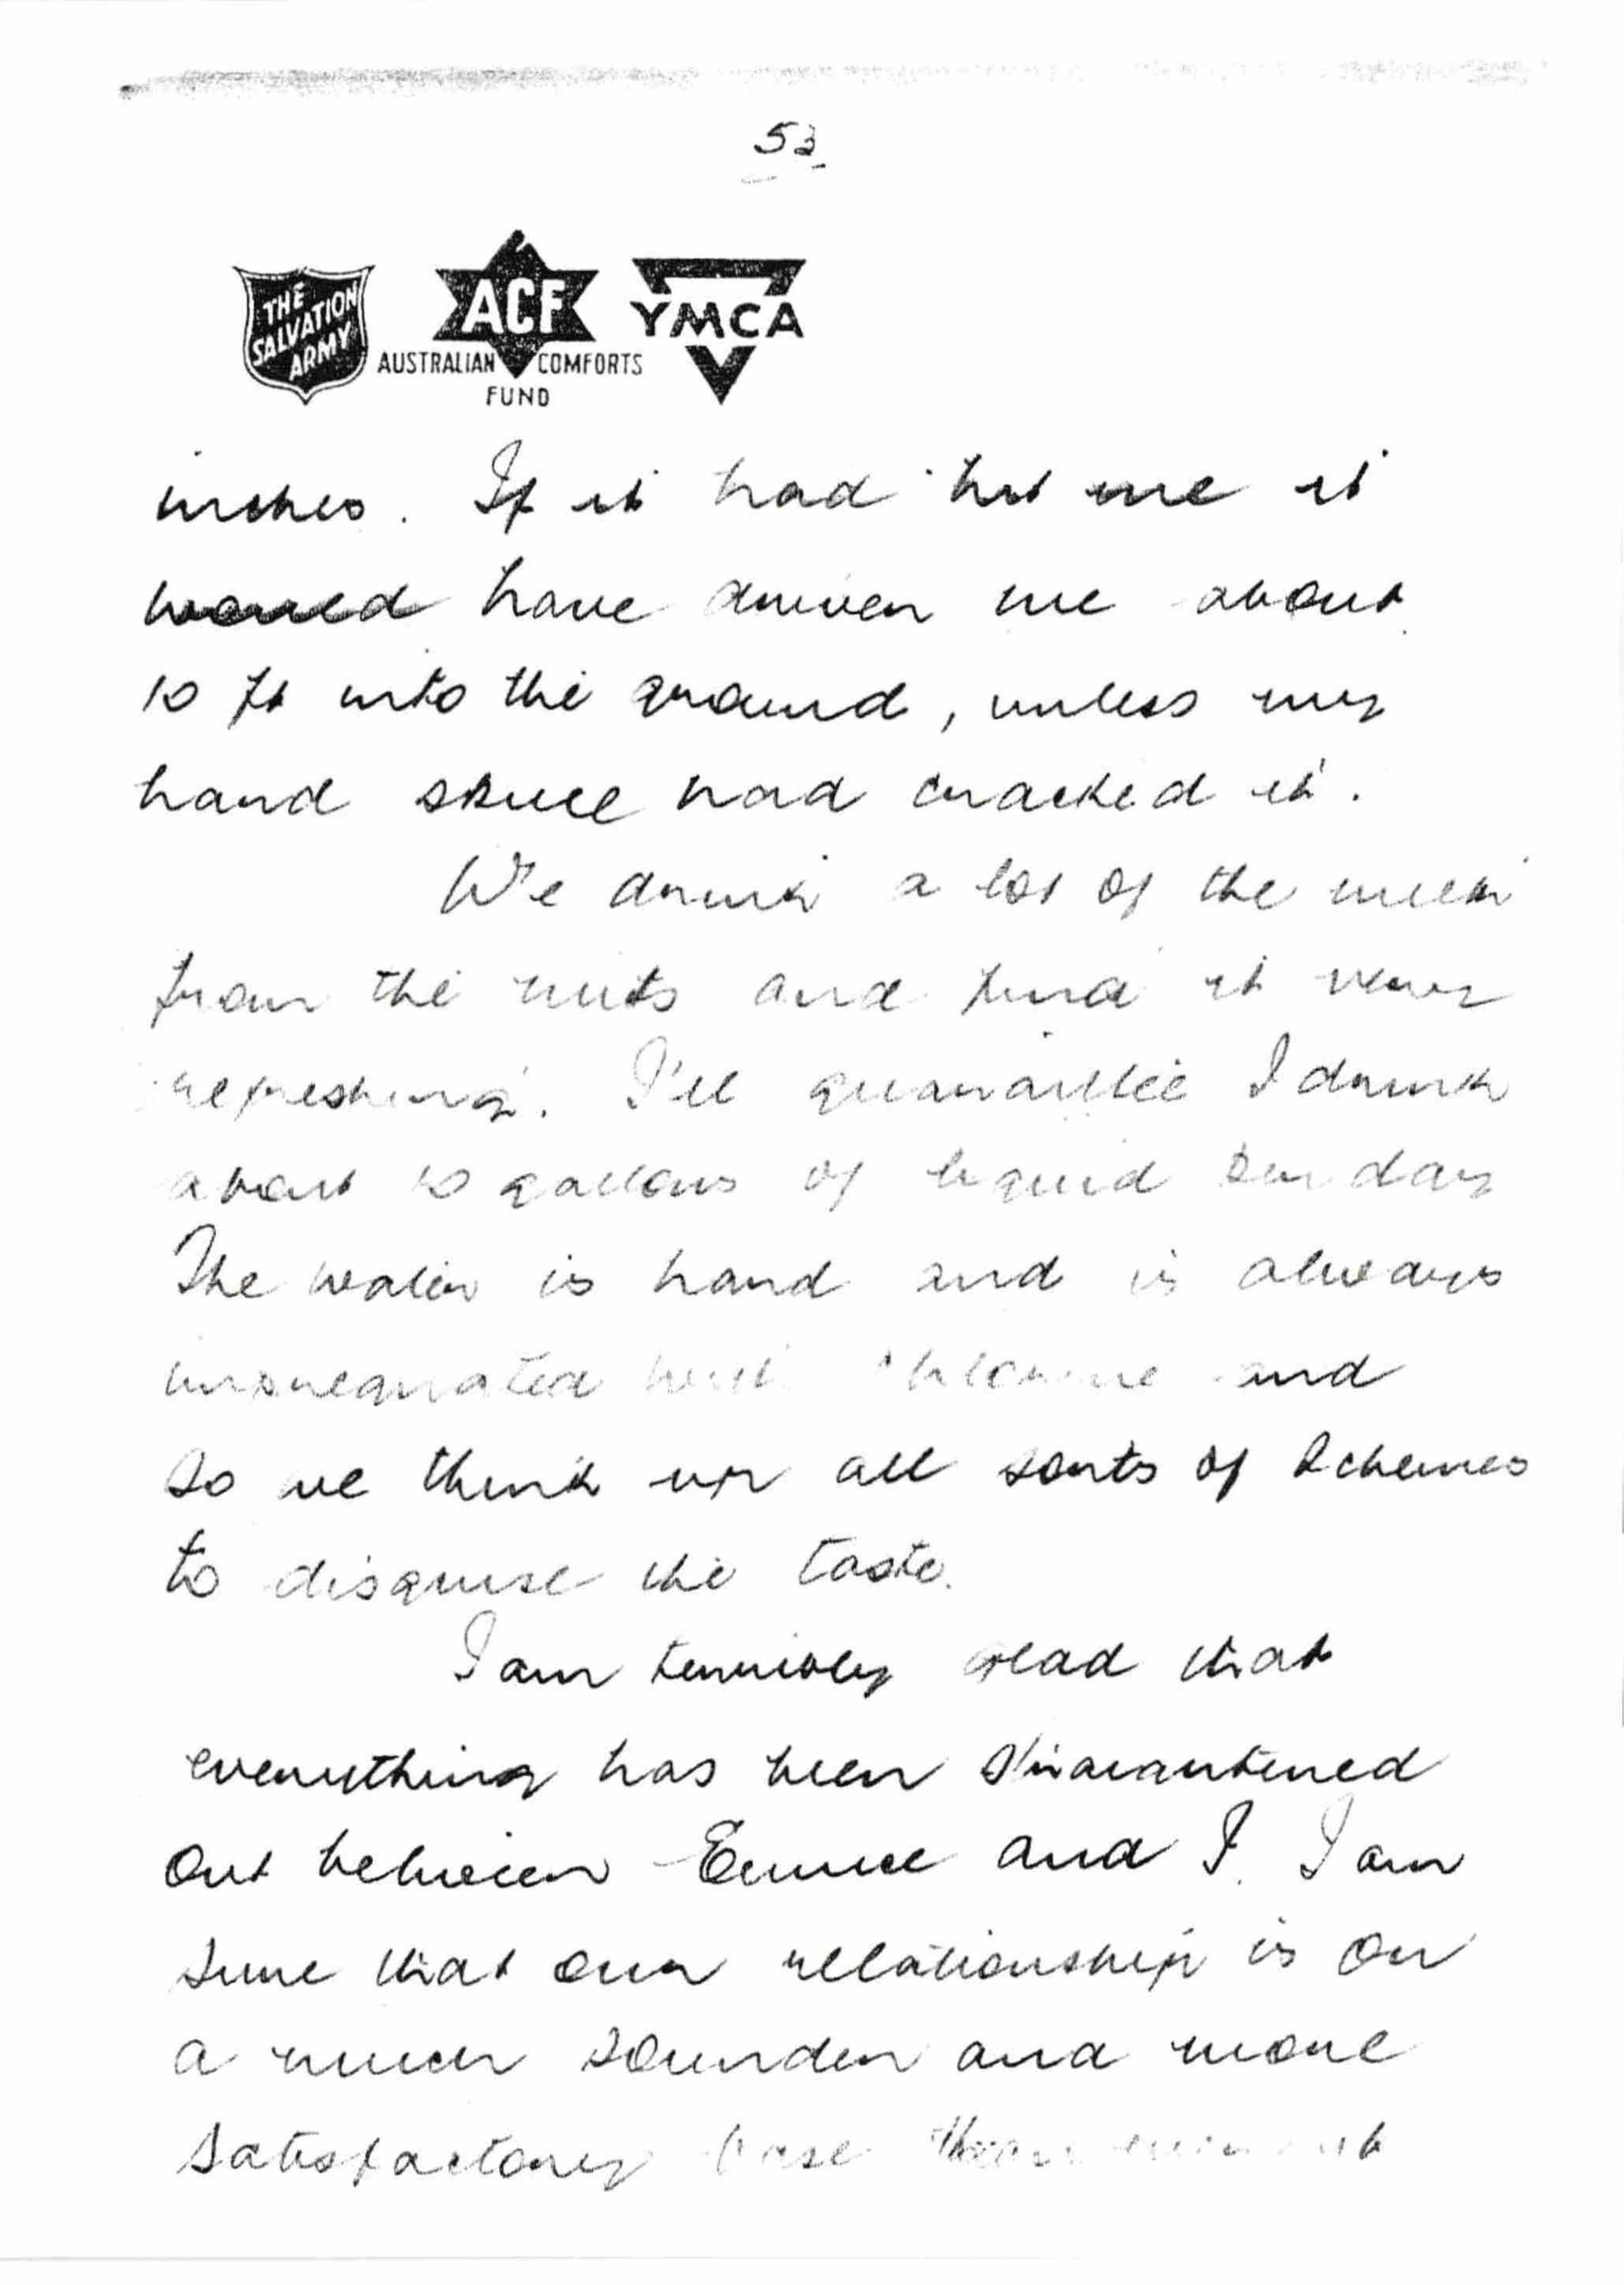 53
THE SALVATION ARMY
ACF
AUSTRALIAN COMFORTS
FUND
YMCA
inches. If it had hit me it
would have driven me about
10 ft into the ground, unless my
hard skull had cracked it.
We drink a lot of the milk
from the nuts and find it very
refreshing. I'll guarantee I drink
about 10 gallons of liquid per day
The water is hard and is always
impregnated with chlorine and
so we think up all sorts of schemes
to disguise the taste.
I am terribly glad that
everything has been straightened
out between Eunice and I. I am
sure that our relationship is on
a much sounder and more
satisfactory base than ever it